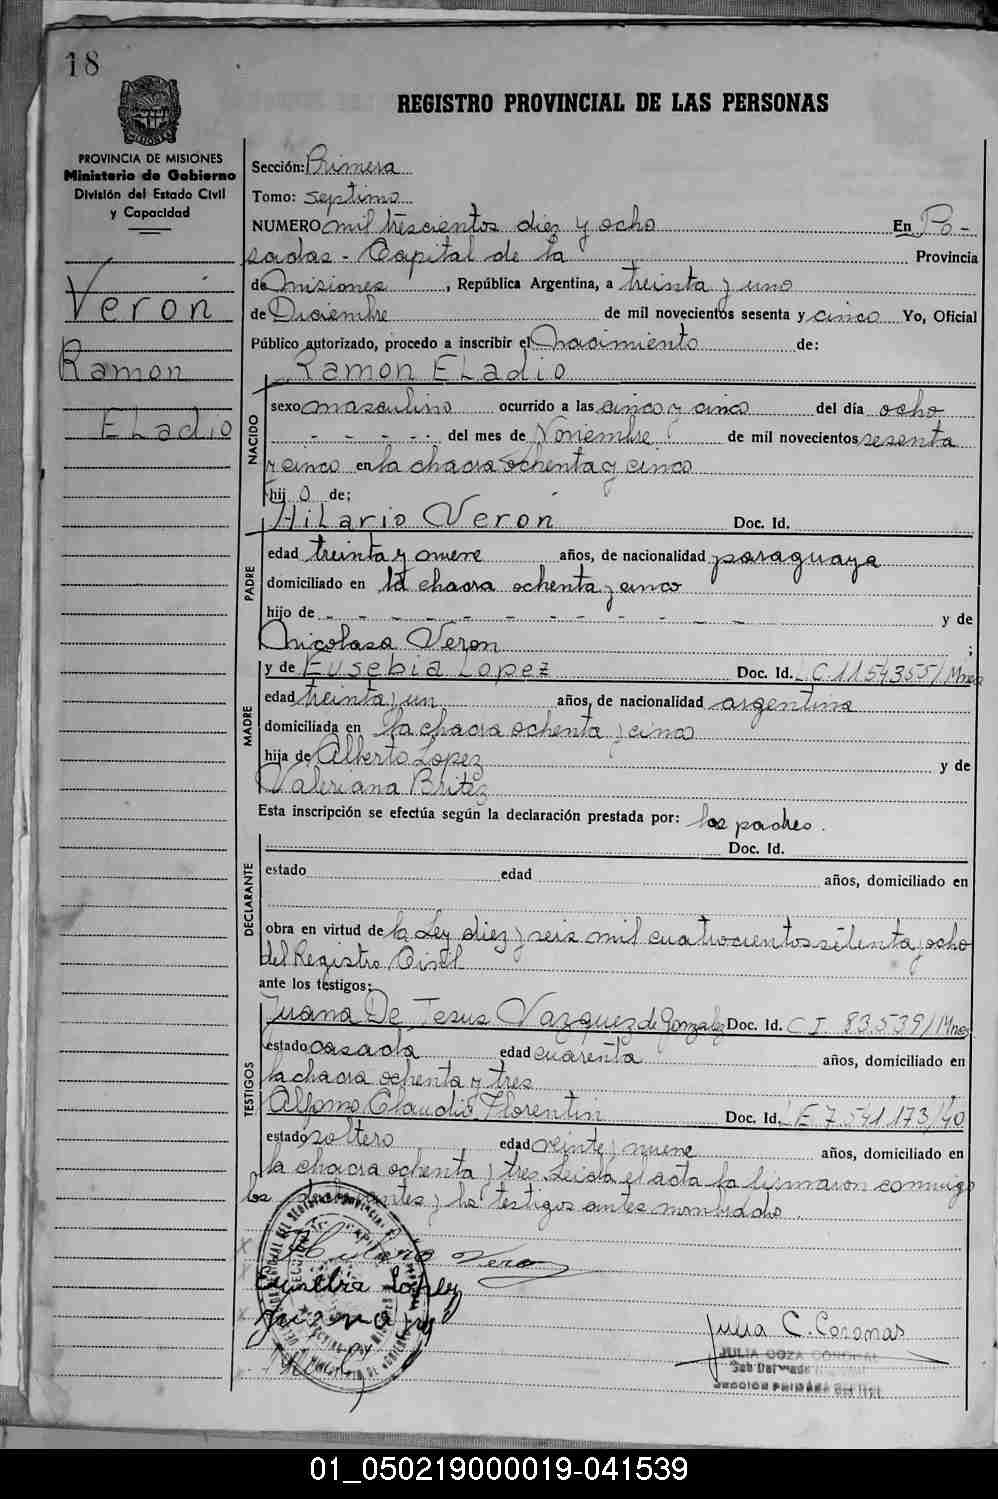 18
PROVINCIA DE MISIONES
Ministerio de Gobierno
División del Estado Civil
y Capacidad
Verón
Ramon
ELadio
REGISTRO PROVINCIAL DE LAS PERSONAS
Sección: Primera
Tomo: septimo
NUMERO mil trescientos diez y ocho En Po-
sadas - Capital de la Provincia
de Misiones, República Argentina, a treinta y uno
de Diciembre de mil novecientos sesenta y cinco Yo, Oficial
Público autorizado, procedo a inscribir el Nacimiento de:
Ramon ELadio
NACIDO
sexo masculino ocurrido a las cinco y cinco del día ocho
- - - - - del mes de Noviembre de mil novecientos sesenta
y cinco en la chacra ochenta y cinco
hij o de;
PADRE
HiLario Verón Doc. Id.
edad treinta y nueve años, de nacionalidad paraguaya
domiciliado en la chacra ochenta y cinco
hijo de - - - - - - - - - - y de
Nicolasa Veron ;
MADRE
y de Eusebia Lopez Doc. Id. L.C.1154355/Mnes
edad treinta y un años, de nacionalidad argentina
domiciliada en la chacra ochenta y cinco
hija de Alberto Lopez y de
Valeriana Britez
Esta inscripción se efectúa según la declaración prestada por: los padres.
DECLARANTE
Doc. Id.
estado edad años, domiciliado en
obra en virtud de la Ley diez y seis mil cuatrocientos setenta y ocho
del Registro Civil
ante los testigos:
TESTIGOS
Juana De Jesus Vazquez de Gonzalez Doc. Id. C I 83.539/Mnes
estado casada edad cuarenta años, domiciliado en
la chacra ochenta y tres
Alfonso Claudio Florentin Doc. Id. L E 7.541.173/40
estado soltero edad veinte y nueve años, domiciliado en
la chacra ochenta y tres Leida el acta la firmaron conmigo
los declarantes y los testigos antes nombrados.
Hilario Veron
Eusebia Lopez
Julia C. Coronas
JULIA COZA
01_050219000019-041539